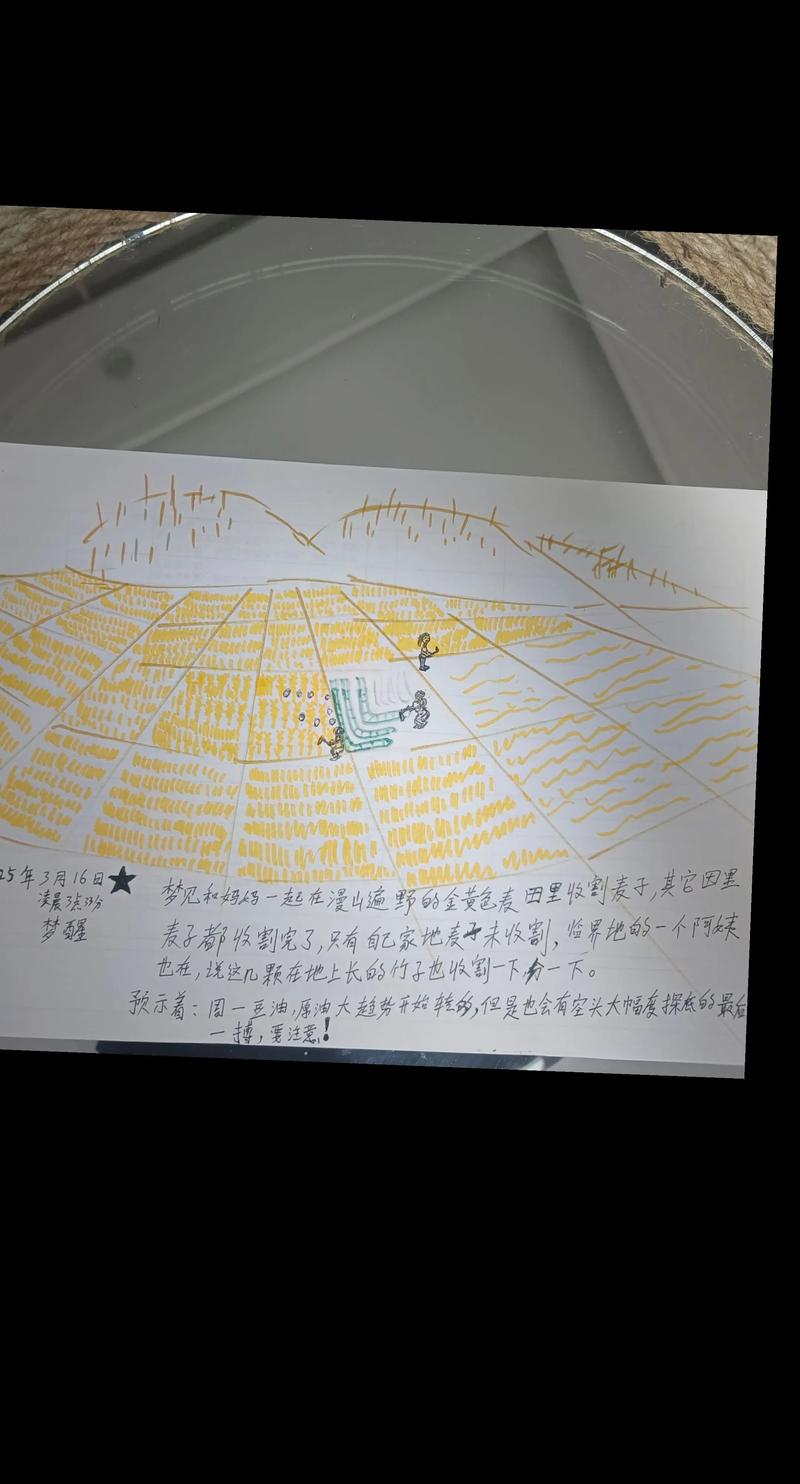 25年3月16日★
凌晨3点33分
梦醒
梦见和妈妈一起在漫山遍野的金黄色麦田里收割麦子,其它田里
麦子都收割完了,只有自己家地麦子未收割,临界地的一个阿姨
也在,说这几颗在地上长的竹子也收割一下,分一下。
预示着:周一豆油,原油大趋势开始转多,但是也会有空头大幅度探底的最后
一搏,要注意!